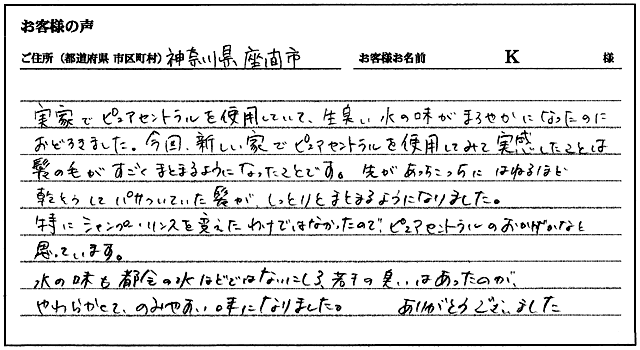 お客様の声
ご住所（都道府県 市区町村） 神奈川県 座間市 お客様お名前 K 様
実家でピュアセントラルを使用していて、生臭い水の味がまろやかになったのに
おどろきました。今回、新しい家でピュアセントラルを使用してみて実感したことは
髪の毛がすごくまとまるようになったことです。先があっちこっちにはねるほど
乾そうしてパサついていた髪が、しっとりとまとまるようになりました。
特にシャンプー・リンスを変えたわけではなかったので、ピュアセントラルのおかげかなと
思っています。
水の味も都会の水ほどではないにしろ、若干の臭いはあったのが、
やわらかくて、のみやすい味になりました。 ありがとうございました